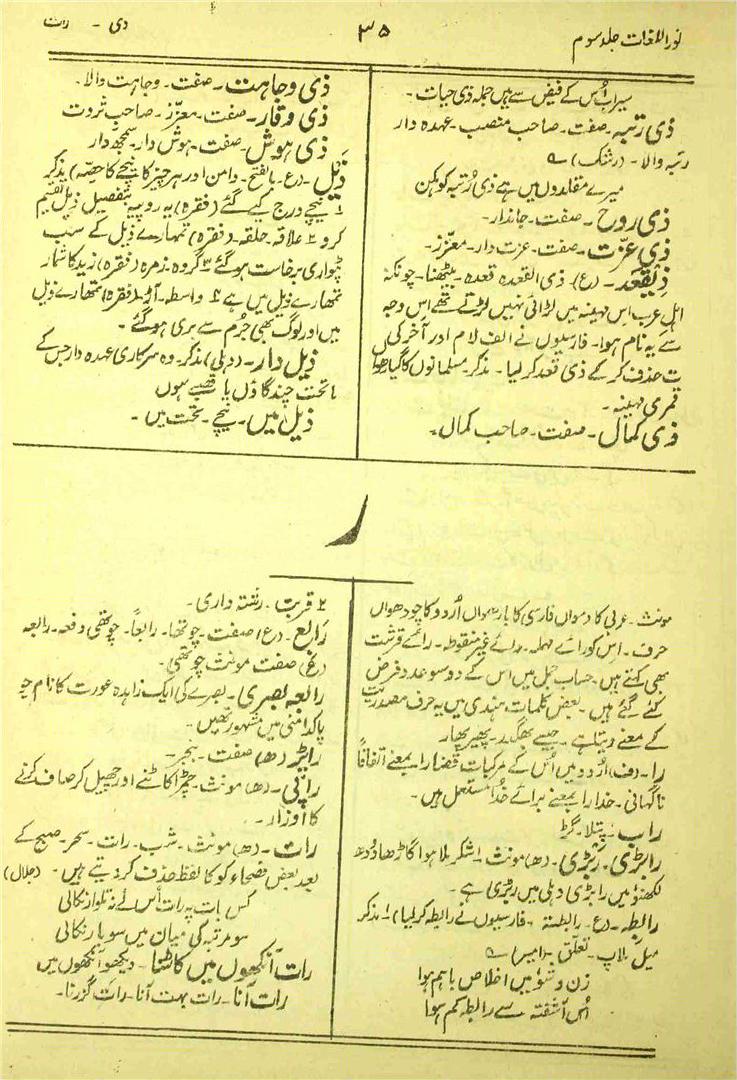 نور اللغات جلد سوم
۳۵
ذی - رات
سیراب اُس کے فیض سے ہیں جملہ ذی حیات۔
ذی رتبہ۔ صفت۔ صاحب منصب۔ عہدہ دار
رتبہ والا۔ (رشک) ؎
میرے مقلدوں میں ہے ذی رُتبہ کوہکن
ذی روح۔ صفت۔ جاندار۔
ذی عزّت۔ صفت۔ عزت دار۔ معزّز۔
ذیقعد۔ (ع) ذی القعدہ قعدہ۔ بیٹھنا۔ چونکہ
اہل عرب اس مہینہ میں لڑائی نہیں لڑتے تھے اس وجہ
سے یہ نام ہوا۔ فارسیوں نے الف لام اور آخر کی
ت حذف کرکے ذی قعد کرلیا۔ مذکر۔ مسلمانوں کا گیارھواں
قمری مہینہ۔
ذی کمال۔ صفت۔ صاحب کمال۔
ذی وجاہت۔ صفت۔ وجاہت والا۔
ذی وقار۔ صفت۔ معزّز۔ صاحب ثروت
ذی ہوش۔ صفت۔ ہوش دار۔ سمجھ دار
ذَیل۔ (ع۔ بالفتح۔ دامن اور ہر چیز کا نیچے کا حصّہ) مذکر
۱ نیچے درج کیے گئے (فقرہ) یہ روپیہ بتفصیل ذیل تقسیم
کرو ۲ علاقہ۔ حلقہ۔ (فقرہ) تمہارے ذیل کے سب
پٹواری برخاست ہوگئے ۳ گروہ۔ زمرہ (فقرہ) زید کا شمار
تمھارے ذیل میں ہے ۴ واسطہ۔ آڑ۔ (فقرہ) تمھارے ذیل
میں اور لوگ بھی جُرم سے بری ہوگئے۔
ذیل دار۔ (دہلی) مذکر۔ وہ سرکاری عہدہ دار جس کے
ماتحت چند گاؤں یا قصبے ہوں
ذیل میں۔ نیچے۔ تحت میں۔
ر
مونث۔ عربی کا دسواں فارسی کا بارھواں اُردو کا چودھواں
حرف۔ اس کو رائے مہملہ۔ رائے غیر منقوطہ۔ رائے قرشت
بھی کہتے ہیں۔ حساب جمل میں اس کے دو سو عدد فرض
کئے گئے ہیں۔ بعض کلمات ہندی میں یہ حرف مصدریت
کے معنے دیتا ہے۔ جیسے بھگدر۔ پھیر پھار
را۔ (ف) اُردو میں اُس کے مرکبات قضا را بمعنے اتفاقًا
ناگہانی۔ خدارا بمعنے برائے خدا مستعمل ہیں۔
راب۔ پتلا۔ گڑ
رابڑی۔ ربڑی۔ (ھ) مونث۔ شکر ملا ہوا گاڑھا دودھ
لکھنؤ میں رابڑی دہلی میں ربڑی ہے۔
رابطہ۔ (ع۔ رابطۃ۔ فارسیوں نے رابطہ کرلیا) ۱ مذکر
میل ملاپ۔ تعلّق۔ (میر) ؎
زن و شو میں اخلاص باہم ہوا
اُس آشفتہ سے رابطہ کم ہوا
۲ قربت۔ رشتہ داری۔
رَابع۔ (ع) صفت۔ چوتھا۔ رابعاً۔ چوتھی دفعہ۔ رابعہ
(ع) صفت مونث چوتھی۔
رابعہ بصری۔ بصرے کی ایک زاہدہ عورت کا نام جو
پاکدامنی میں مشہور تھیں۔
راپڑ (ھ) صفت۔ بنجر۔
راپی۔ (ھ) مونث۔ چمڑا کاٹنے اور چھیل کر صاف کرنے
کا اوزار۔
رات۔ (ھ) مونث۔ شب۔ رات۔ سحر۔ صبح کے
بعد بعض فصحاء کو کا لفظ حذف کر دیتے ہیں۔ (جلال)
کس بات پہ رات اُس نے نہ تلوار نکالی
سو مرتبہ کی میان میں سو بار نکالی
رات آنکھوں میں کاٹنا۔ دیکھو آنکھوں میں
رات آنا۔ رات بہت آنا۔ رات گزرنا۔